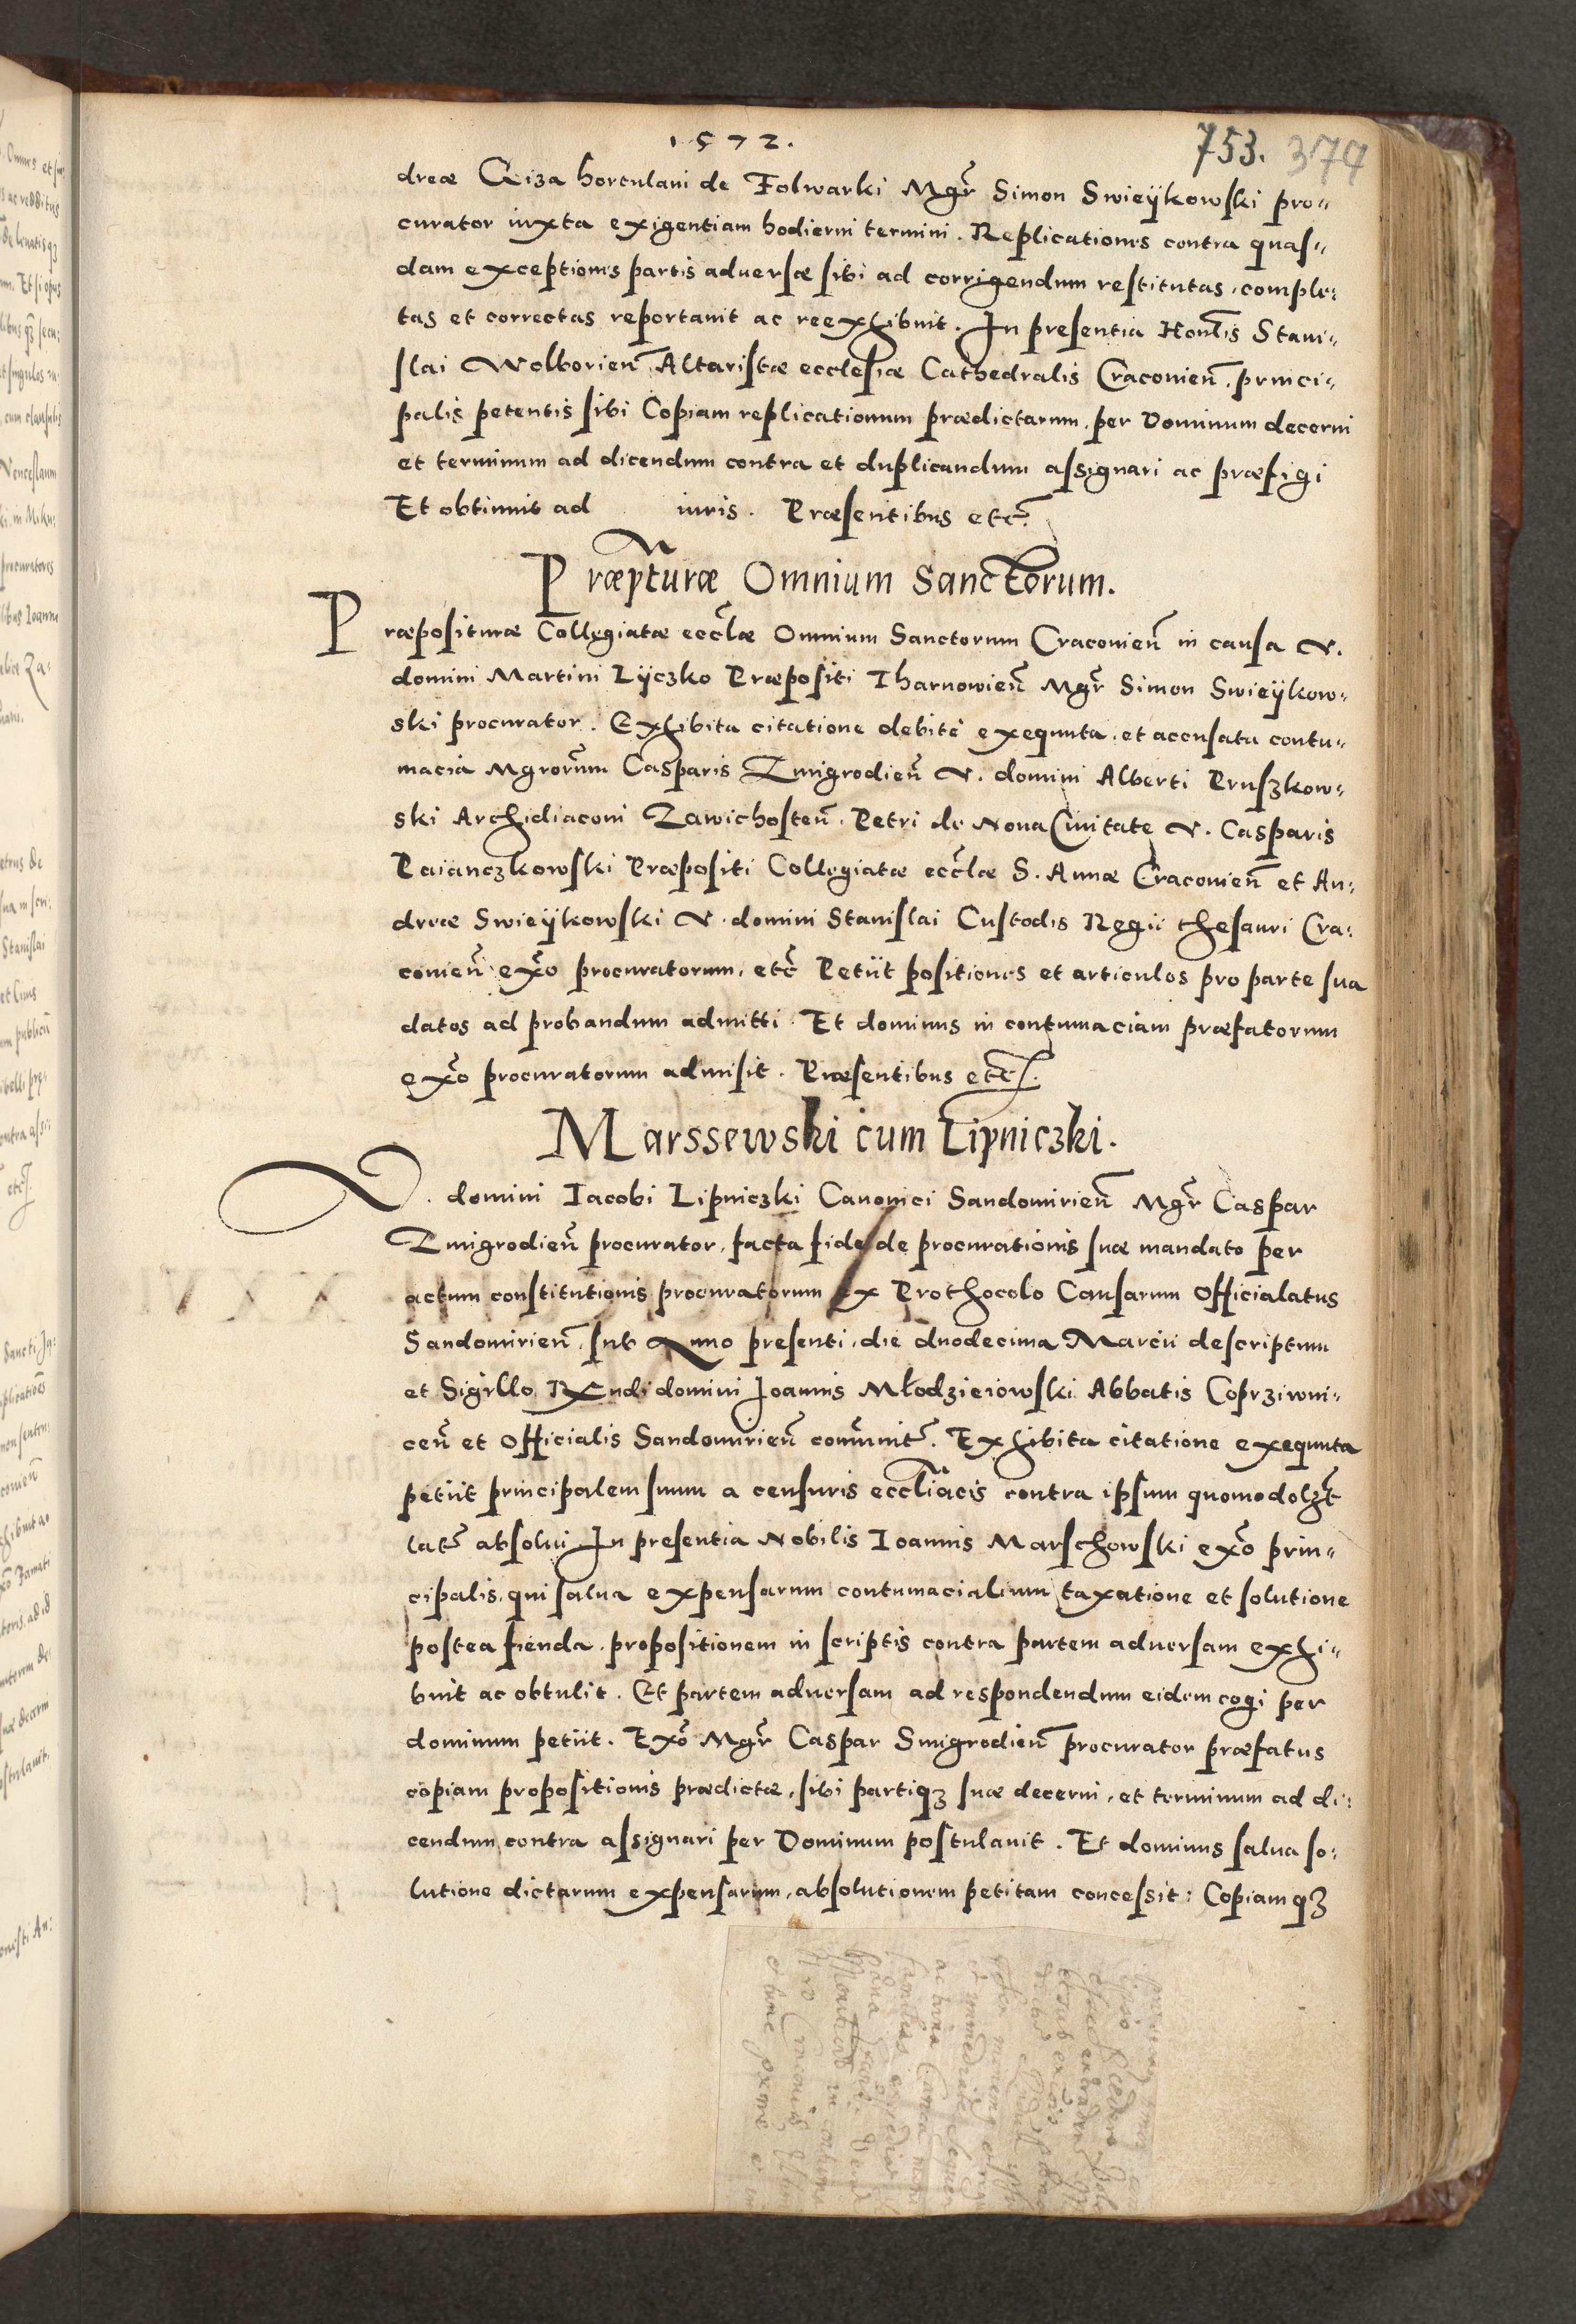 1572.
753. 374
dreæ Giza hortulani de Folwarki Mgr̃ Simon Swieÿkowski pro„
curator iuxta exigentiam hodierni termini. Replicationes contra quas„
dam exceptiones partis aduersæ sibi ad corrigendum restitutas, comple:
tas et correctas reportauit ac reexhibuit. In presentia Honlis Stani„
slai Wolborien̄ Altaristæ ecclesiæ Cathedralis Craconien̄, princi„
palis petentis sibi Copiam replicationum prædictarum, per Dominum decerni
et terminum ad dicendum contra et duplicandum assignari ac præfigi
Et obtinuit ad iuris. Præsentibus etc̃
Præptũræ Omnium Sanctorum.
Præpositurae Collegiatæ eccl̃æ Omnium Sanctorum Craconien̄ in causa V.
domini Martini Lÿczko Præpositi Tharnowien̄ Mgr̃ Simon Swieÿkow„
ski procurator. Exhibita citatione debitè exequuta, et accusata contu„
macia Mgror̃um Casparis Zmigrodien̄ V. domini Alberti Pruszkow„
ski Archidiaconi Zawichosten̄. Petri de Noua Ciuitate V. Casparis
Paianczkowski Præpositi Collegiatæ eccl̃æ S. Annæ Craconien̄ et An:
dreæ Swieÿkowski V. domini Stanislai Custodis Regii thesauri Cra:
conien̄ exõ procuratorum, etc̃ Petiit positiones et articulos pro parte sua
datos ad probandum admitti. Et dominus in contumaciam præfatorum
exõ procuratorum admisit. Præsentibus etc̃.
Marssewski cum Lipniczki.
V. domini Iacobi Lipniczki Canonici Sandomirien̄ Mgr̃ Caspar
Zmigrodien̄ procurator, facta fide de procurationis suæ mandato per
actum constitutionis procuratorum ex Prothocolo Causarum Officialatus
Sandomirien̄, sub Anno presenti, die duodecima Marcii descriptum
et Sigillo Rx̃ndi domini Joannis Młodzieiowski Abbatis Coprziwni„
cen̄ et Officialis Sandomirien̄ com̃unit̃. Exhibita citatione exequuta
petiit principalem suum a censuris eccl̃iacis contra ipsum quomodolz̃t
lat̃ absolui. In presentia Nobilis Ioannis Marschowski exõ prin„
cipalis, qui salua expensarum contumacialium taxatione et solutione
postea fienda, propositionem in scriptis contra partem aduersam exhi„
buit ac obtulit. Et partem aduersam ad respondendum eidem cogi per
dominum petiit. Exõ Mgr̃ Caspar Smigrodien̄ procurator præfatus
copiam propositionis prædictæ, sibi partiqꝫ suæ decerni, et terminum ad di:
cendum contra assignari per Dominum postulauit. Et dominus salua so:
lutione dictarum expensarum, absolutionem petitam concessit: Copiamqꝫ